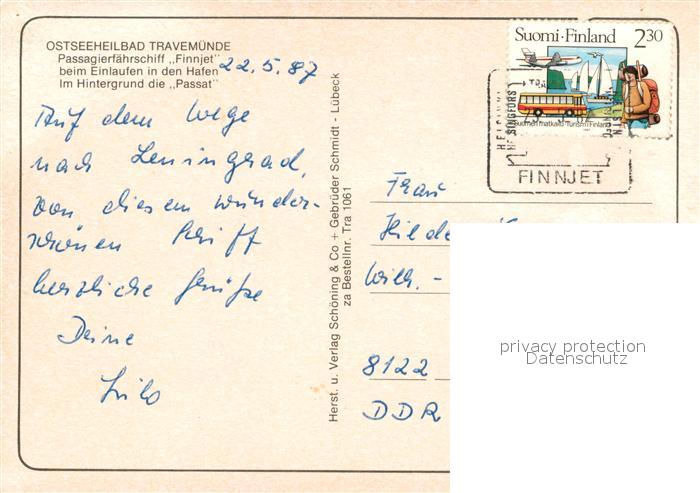 OSTSEEHEILBAD TRAVEMÜNDE
Passagierfährschiff „Finnjet"
beim Einlaufen in den Hafen
Im Hintergrund die „Passat"
22.5.87
Auf dem Wege
nach Leningrad,
von diesem wunder-
schönen Schiff
herzliche Grüße
Deine
Lilo
Herst. u. Verlag Schöning & Co + Gebrüder Schmidt - Lübeck
za Bestellnr. Tra 1061
Suomi·Finland 2 30
Suomen matkailu-Turism i Finland
HELSINKI
HELSINGFORS
FINNJET
Frau
Hilde
Wilh. -
8122
DDR
privacy protection
Datenschutz